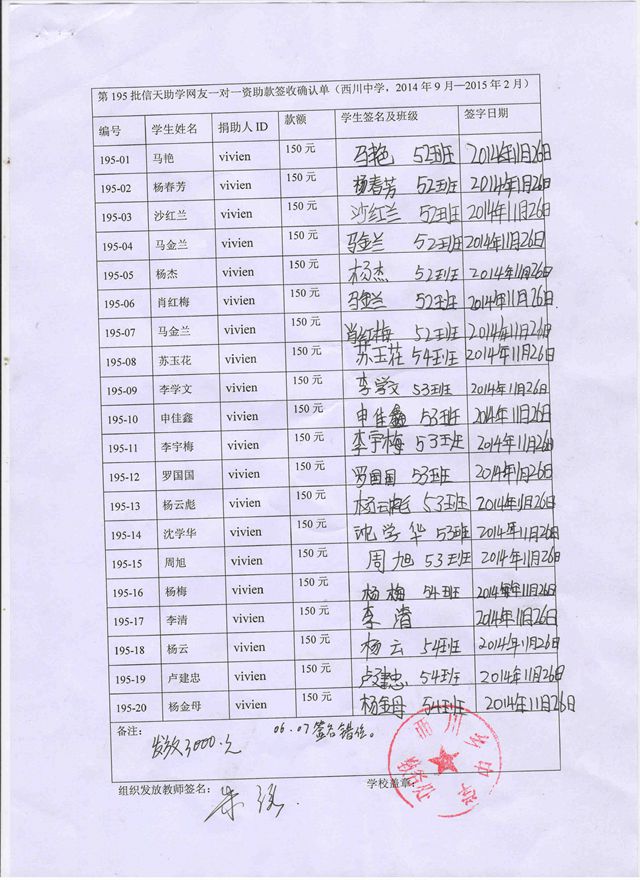 第 195 批信天助学网友一对一资助款签收确认单（西川中学，2014 年 9 月—2015 年 2 月）
编号 学生姓名 捐助人 ID 款额 学生签名及班级 签字日期
195-01 马艳 vivien 150 元 马艳 52班 2014年11月26日
195-02 杨春芳 vivien 150 元 杨春芳 52班 2014年11月26日
195-03 沙红兰 vivien 150 元 沙红兰 52班 2014年11月26日
195-04 马金兰 vivien 150 元 马金兰 52班 2014年11月26日
195-05 杨杰 vivien 150 元 杨杰 52班 2014年11月26日
195-06 肖红梅 vivien 150 元 马金兰 52班 2014年11月26日
195-07 马金兰 vivien 150 元 肖红梅 52班 2014年11月26日
195-08 苏玉花 vivien 150 元 苏玉花 54班 2014年11月26日
195-09 李学文 vivien 150 元 李学文 53班 2014年11月26日
195-10 申佳鑫 vivien 150 元 申佳鑫 53班 2014年11月26日
195-11 李宇梅 vivien 150 元 李宇梅 53班 2014年11月26日
195-12 罗国国 vivien 150 元 罗国国 53班 2014年11月26日
195-13 杨云彪 vivien 150 元 杨云彪 53班 2014年11月26日
195-14 沈学华 vivien 150 元 沈学华 53班 2014年11月26日
195-15 周旭 vivien 150 元 周旭 53班 2014年11月26日
195-16 杨梅 vivien 150 元 杨梅 54班 2014年11月26日
195-17 李清 vivien 150 元 李清 2014年11月26日
195-18 杨云 vivien 150 元 杨云 54班 2014年11月26日
195-19 卢建忠 vivien 150 元 卢建忠 54班 2014年11月26日
195-20 杨金母 vivien 150 元 杨金母 54班 2014年11月26日
备注：
发放3000.元 06.07签名错位。
组织发放教师签名： 学校盖章：